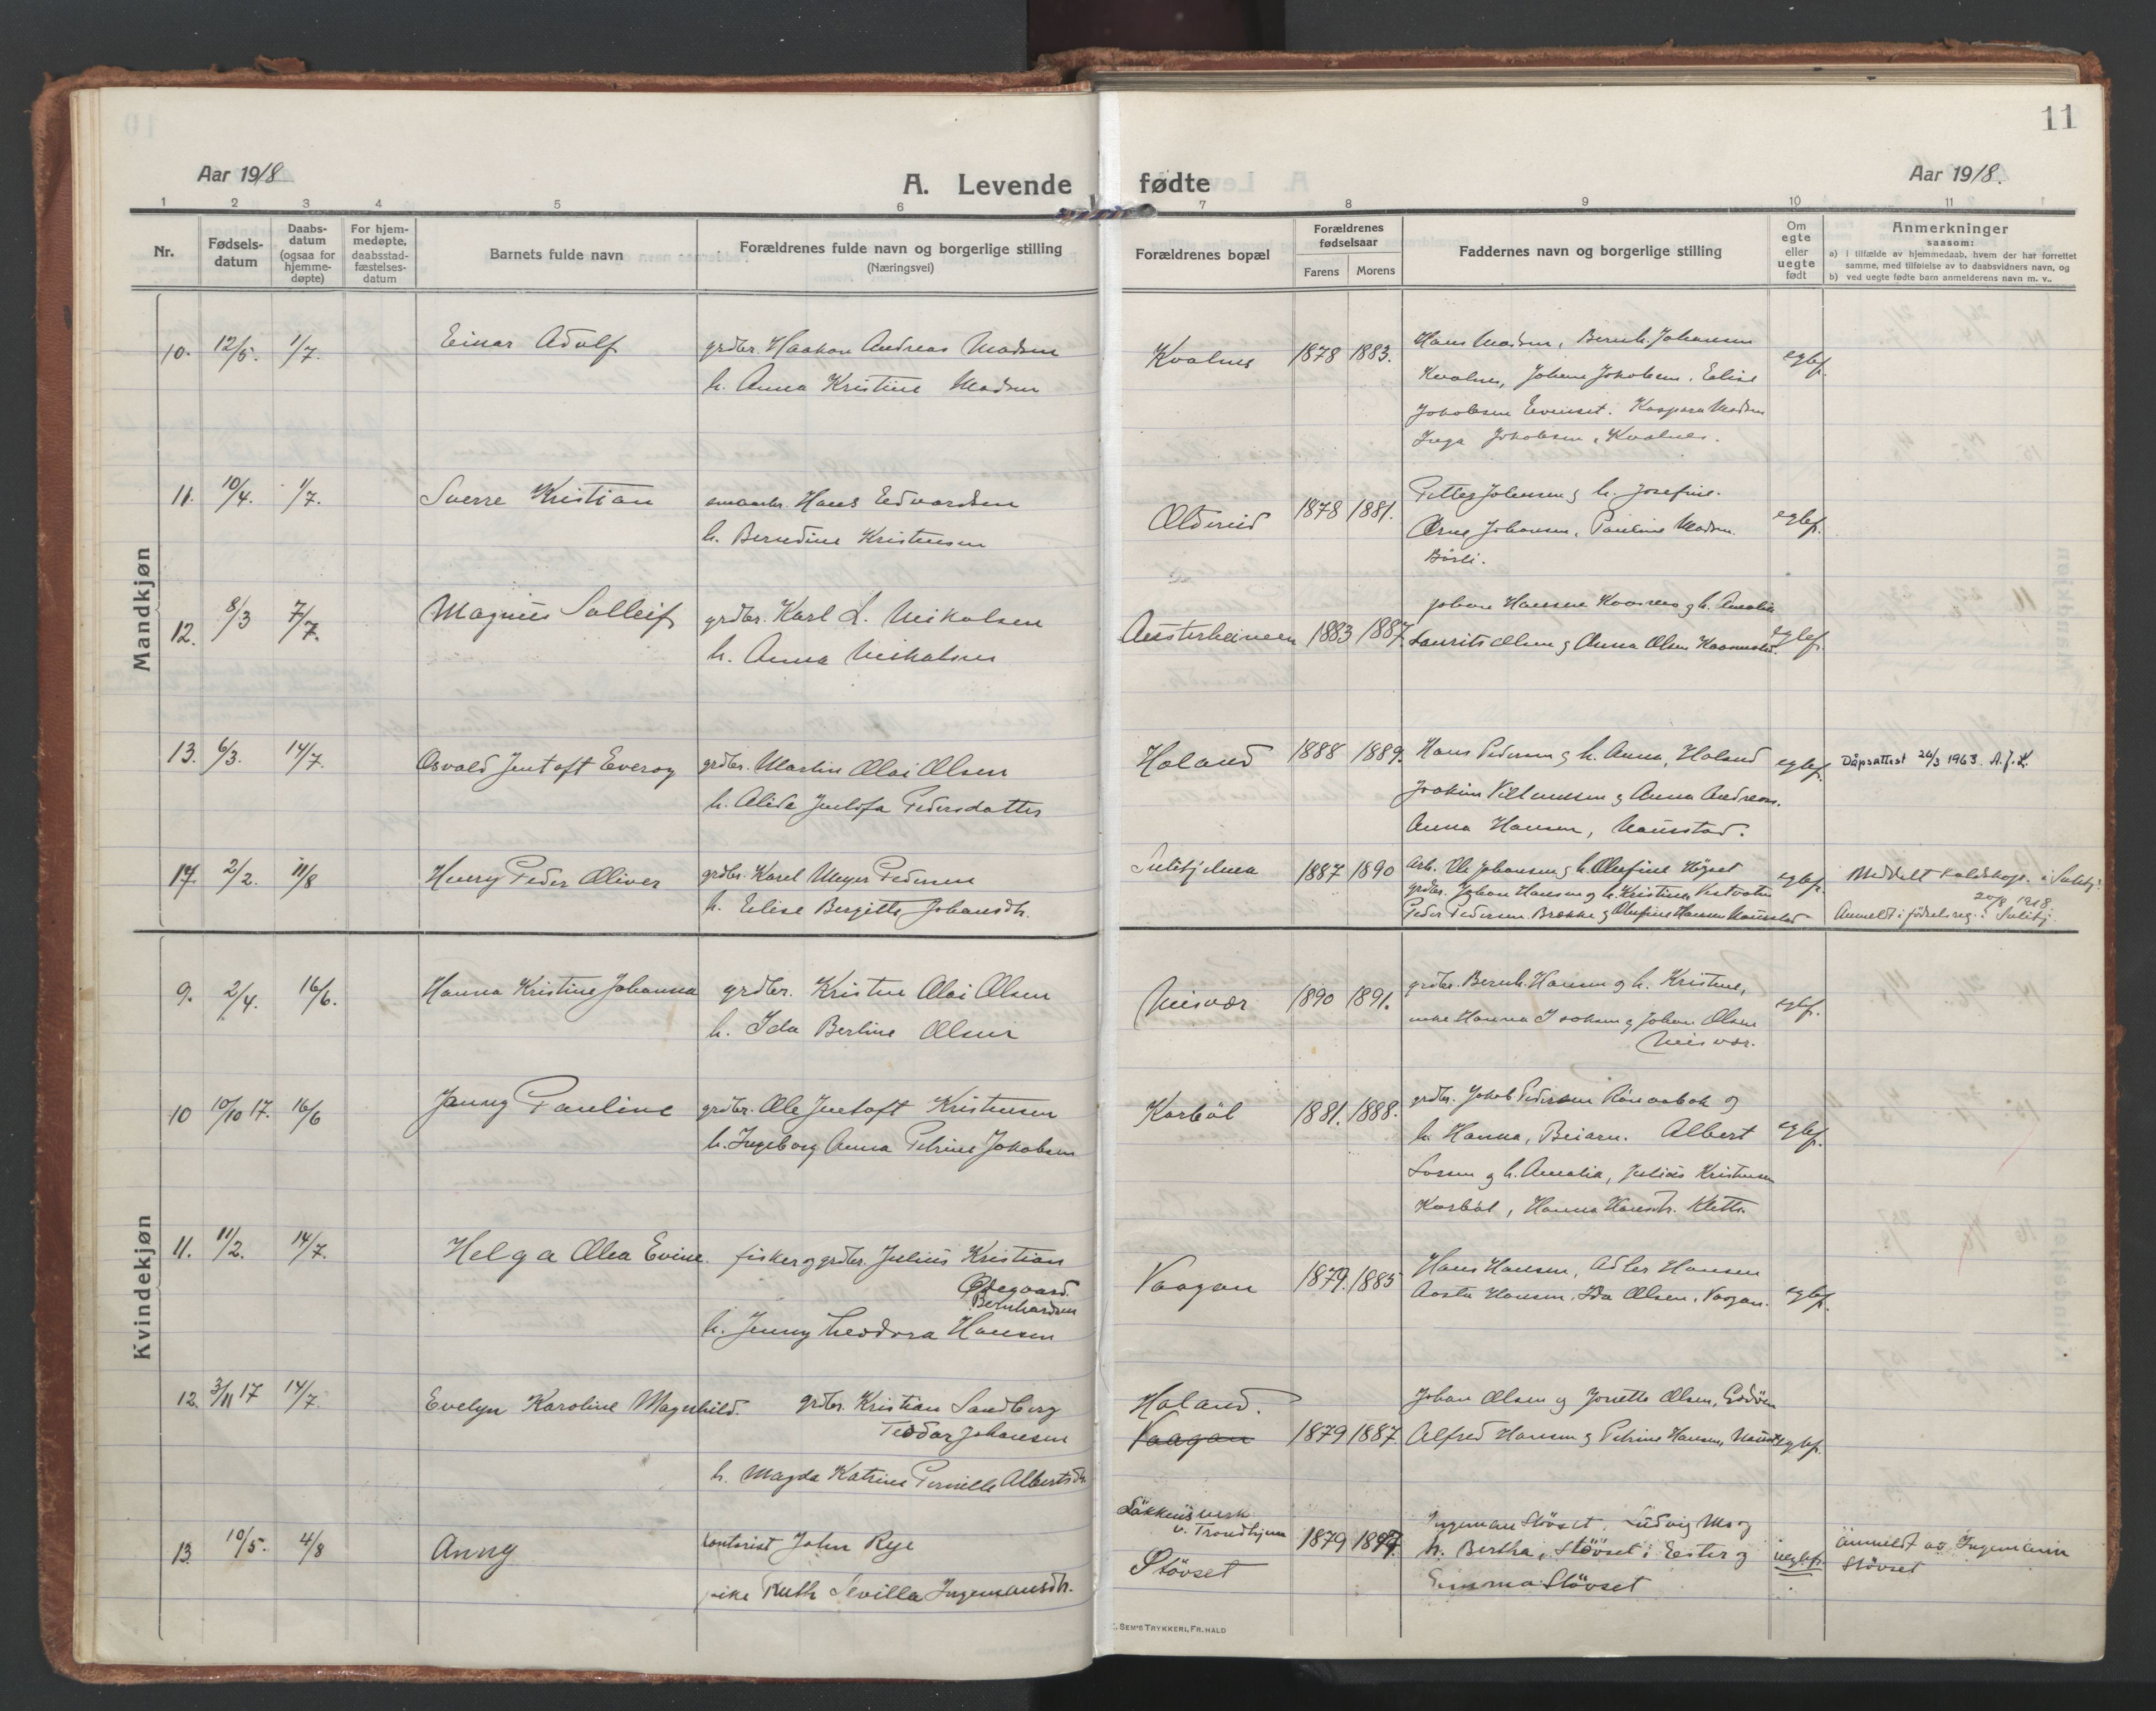 11
Aar 1918
A. Levende fødte
Aar 1918.
1 2 3 4 5 6 7 8 9 10 11
Nr.
Fødsels-
datum
Daabs-
datum
(ogsaa for
hjemme-
døpte)
For hjem-
medøpte,
daabsstad-
fæstelses-
datum
Barnets fulde navn
Forældrenes fulde navn og borgerlige stilling
(Næringsvei)
Forældrenes bopæl
Forældrenes
fødselsaar
Farens
Morens
Faddernes navn og borgerlige stilling
Om
egte
eller
uegte
født
Anmerkninger
saasom:
a) i tilfælde av hjemmedaab, hvem der har forrettet
samme, med tilføielse av to daabsvidners navn, og
b) ved uegte fødte barn anmelderens navn m. v..
Mandkjøn
10. 12/5. 1/7.
Einar Adolf
grdbr. Haakon Andreas Madsen
h. Anna Kristine Madsen
Kvalnes
1878 1883.
Hans Madsen, Bernh. Johansen
Kvalnes, Johan Jakobsen, Elise
Jakobsen Evenset. Kaspara Madsen
Inga Jakobsen, Kvalnes.
egtef.
11. 10/4. 1/7.
Sverre Kristian
smaabr. Hans Edvardsen
h. Berndine Kristensen
Oldereid
1878 1881.
Petter Johansen og h. Josefine.
Arne Johansen, Pauline Madsen
Börli.
egtef.
12. 8/3 7/7.
Magnus Solleif
grdbr. Karl L. Nikolsen
h. Anna Nikolsen
1883 1887.
Johan Hansen og h. Amalia
Laurits Olsen og Anna Olsen
egtef.
13. 6/3. 14/7.
Osvald Jentoft Everoy
grdbr. Martin Olai Olsen
h. Alida Jentofa Pedersdatter
Holand
1888 1889.
Hans Pedersen og h. Anna, Holand
Joakim Villumsen og Anna Andreas.
Anna Hansen, Naustad.
egtef.
Dåpsattest 26/3 1963. A.J.L.
14. 2/2. 11/8
Henry Peder Oliver
grdbr. Karel Meyer Pedersen
h. Elise Bergitte Johansdtr.
Sulitjelma
1887 1890
arb. Ole Johansen og h. Olufine Högset
grdbr. Johan Hansen og h. Kristine Kvitvatn
Peder Pedersen Brække og Olufine Hansen Naustad
egtef.
Meddelt Kaldskap. i Sulitj.
20/8 1918.
Anmeldt i fødselsreg. i Sulitj.
Kvindekjøn
9. 2/4. 16/6.
Hanna Kristine Johanna
grdbr. Kristen Olai Olsen
h. Ida Berline Olsen
Misvær
1890 1891.
grdbr. Bernh. Hansen og h. Kristine,
enke Hanna Isaksen og Johan Olsen
Misvær.
egtef.
10 10/10 17. 16/6
Janny Pauline
grdbr. Ole Jentoft Kristensen
h. Ingeborg Anna Petrine Jakobsen
Karböl
1881. 1888.
grdbr. Jakob Pedersen og
h. Hanna, Beiarn. Albert
Larsen og h. Amalia, Julius Kristensen
Karböl, Hanna Hansdtr. Klette.
egtef.
11. 11/2. 14/7.
Helga Olea Evine.
fisker og grdbr. Julius Kristian
Ødegaard
Bernhardsen
h. Jenny Teodora Hansen
Vaagan
1879. 1885
Hans Hansen, Adler Hansen
Aasta Hansen, Ida Olsen, Vaagan.
egtef.
12. 3/11 17 14/7.
Evelyn Karoline Magnhild.
grdbr. Kristian Sandberg
Teodor Johansen
h. Magda Katrine Pernille Albertsdtr.
Holand.
Vaagan
1879 1887.
Johan Olsen og Jonette Olsen, Godöen
Alfred Hansen og Petrine Hansen,
egtef.
13. 10/5. 4/8
Anny
kontorist John Rye
pike Ruth Sevilla Ingemansdtr.
Løkkens verk
v. Trondhjem
Stövset
1879
Ingeman Stövset, Ludvig Mo og
h. Bertha, Stövset; Ester og
Emma Stövset
uegtef.
anmeldt av Ingemann
Stövset
E. SEM'S TRYKKERI, FR. HALD